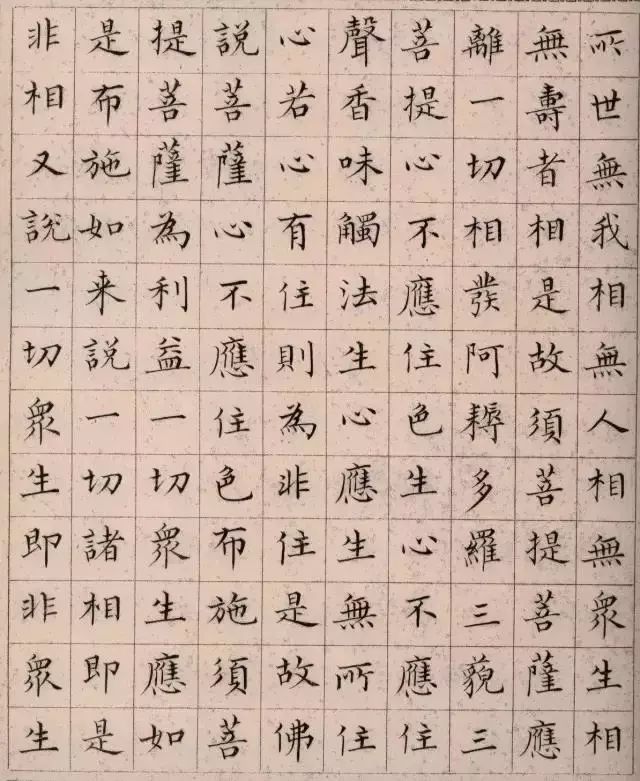 所世無我相無人相無衆生相
無壽者相是故須菩提菩薩應
離一切相發阿耨多羅三藐三
菩提心不應住色生心不應住
聲香味觸法生心應生無所住
心若心有住則為非住是故佛
說菩薩心不應住色布施須菩
提菩薩為利益一切衆生應如
是布施如来說一切諸相即是
非相又說一切衆生即非衆生